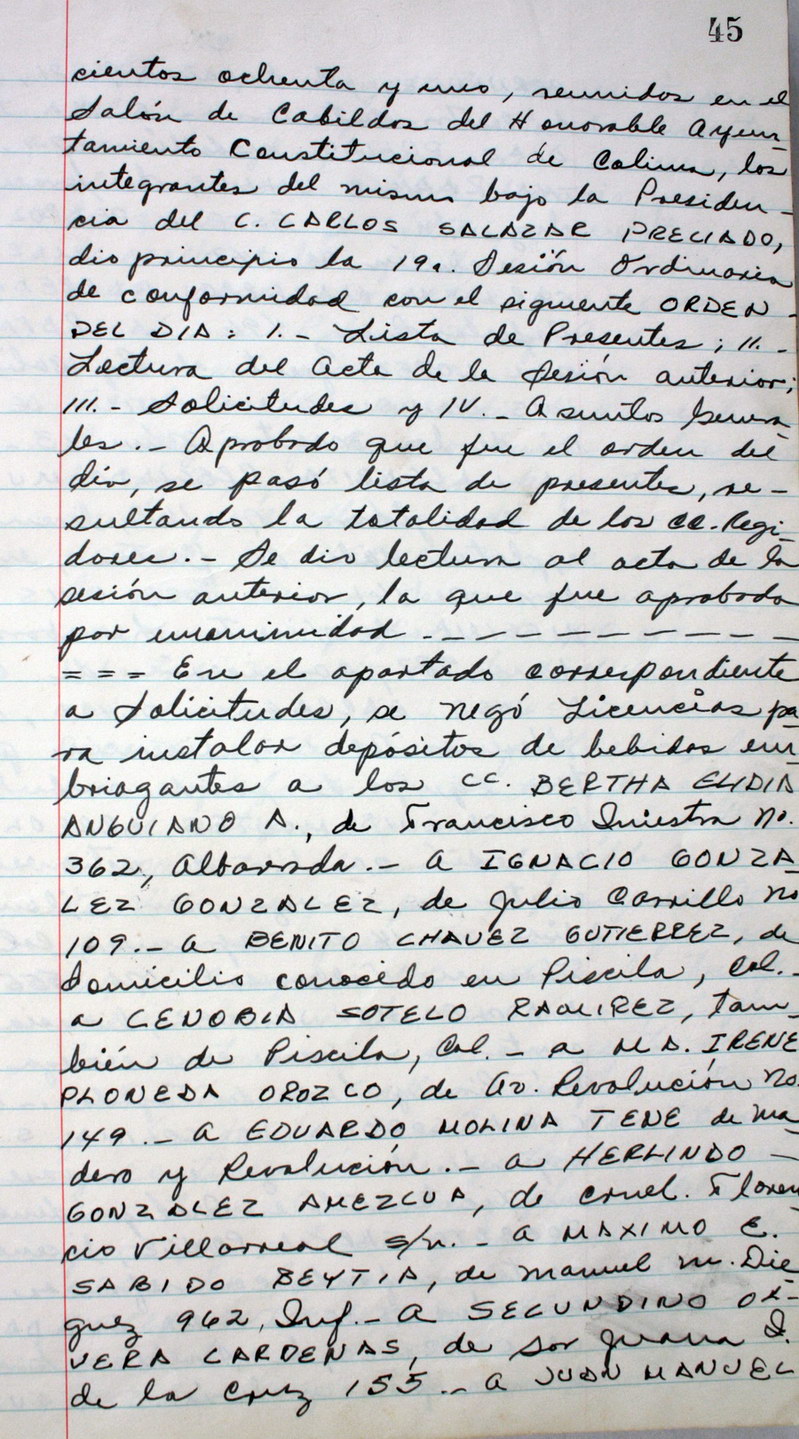 45
cientos ochenta y uno, reunidos en el
Salón de Cabildos del Honorable Ayun-
tamiento Constitucional de Colima, los
integrantes del mismo bajo la Presiden-
cia del C. CARLOS SALAZAR PRECIADO,
dio principio la 19a. Sesión Ordinaria
de conformidad con el siguiente ORDEN
DEL DIA: I.- Lista de Presentes; II.-
Lectura del Acta de la Sesión anterior;
III.- Solicitudes y IV.- Asuntos Genera
les.- Aprobado que fue el orden del
día, se pasó lista de presentes, re-
sultando la totalidad de los CC. Regi-
dores.- Se dio lectura al acta de la
sesión anterior, la que fue aprobada
por unanimidad.- - - - - - - - - -
= = = En el apartado correspondiente
a Solicitudes, se negó Licencias pa
ra instalar depósitos de bebidas em
briagantes a los CC. BERTHA ELIDIA
ANGUIANO A., de Francisco Iniestra No.
362, Albarrada.- A IGNACIO GONZA-
LEZ GONZALEZ, de Julio Carrillo No
109.- a BENITO CHAVEZ GUTIERREZ, de
domicilio conocido en Piscila, Col.-
a CENOBIA SOTELO RAMIREZ, tam-
bién de Piscila, Col.- a MA. IRENE
PLONEDA OROZCO, de Av. Revolución No.
149.- A EDUARDO MOLINA TENE de Ma
dero y Revolución.- a HERLINDO -
GONZALEZ AMEZCUA, de cruel. Floren
cio Villarreal s/n.- a MAXIMO E.
SABIDO BEYTIA, de Manuel M. Dié
guez 962, Inf.- A SECUNDINO OLI-
VERA CARDENAS, de Sor Juana I.
de la Cruz 155.- a JUAN MANUEL